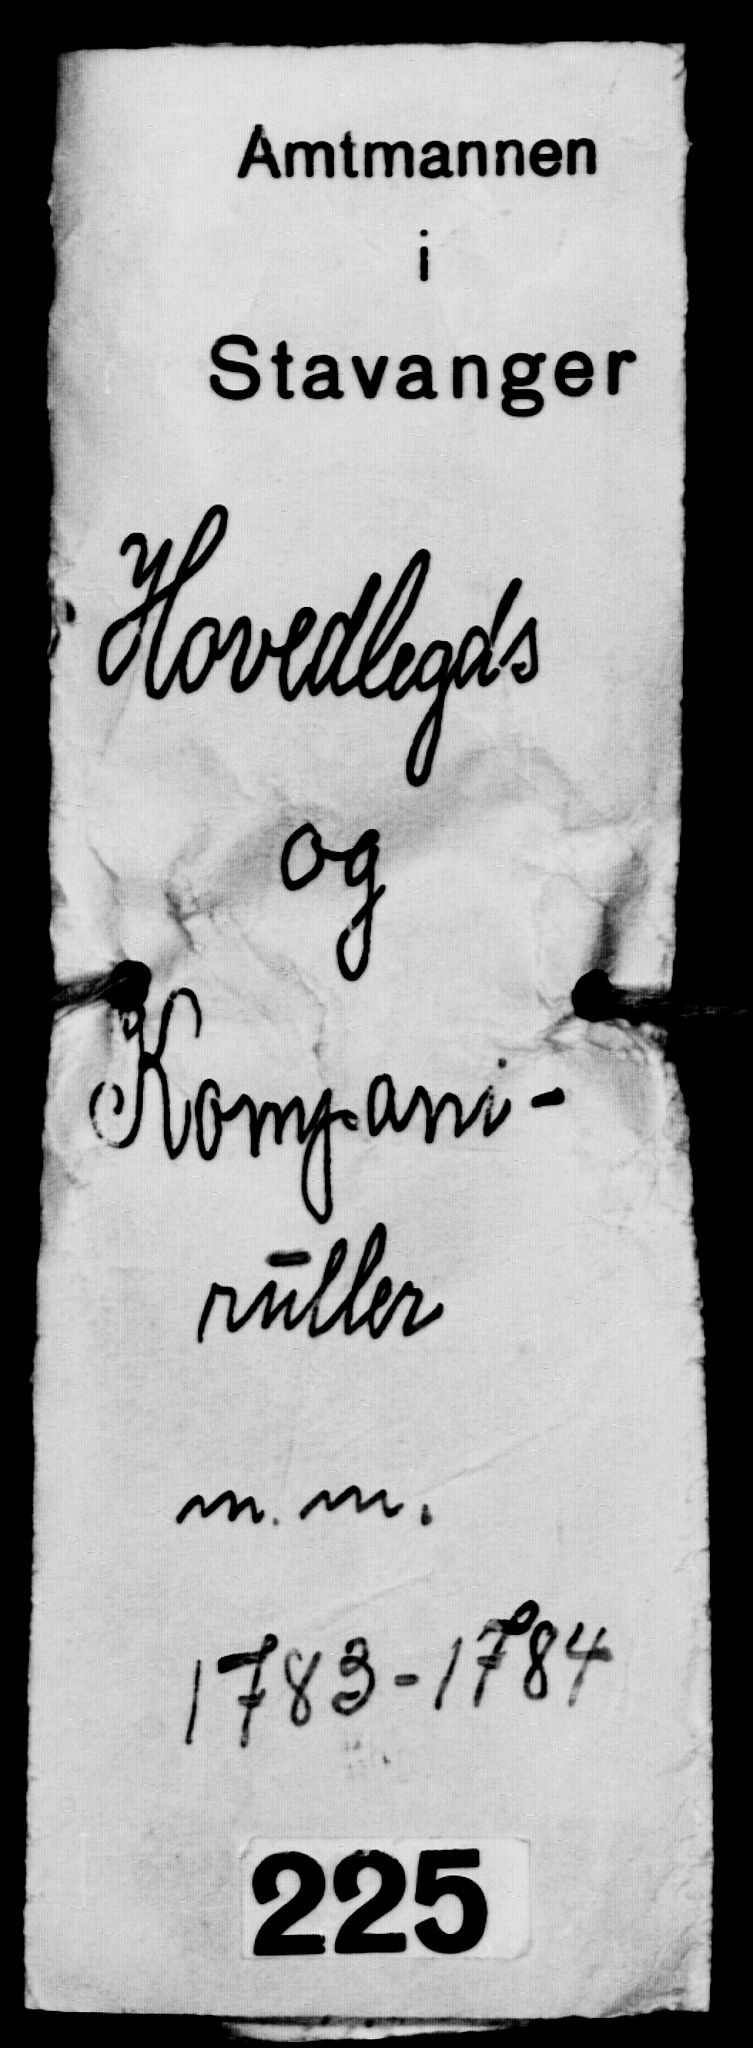 Amtmannen
i
Stavanger
Hovedlegds
og
Kompani-
ruller
m.m.
1783-1784
225